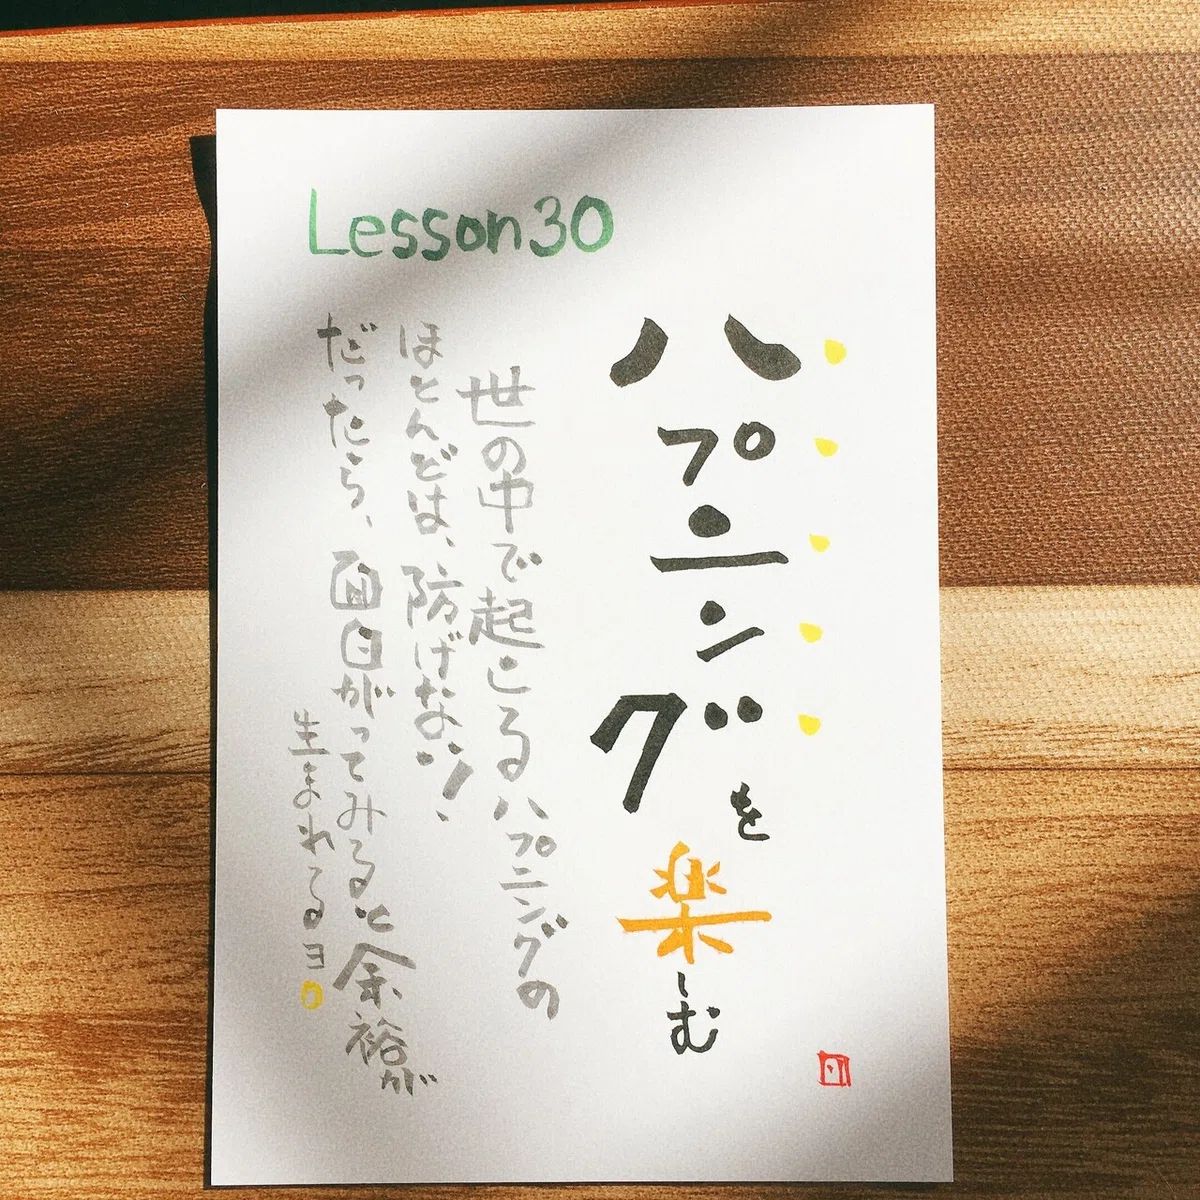 Lesson30
ハプニングを楽しむ
世の中で起こるハプニングの
ほとんどは、防げない、
だったら、面白がってみると余裕が
生まれるヨ。